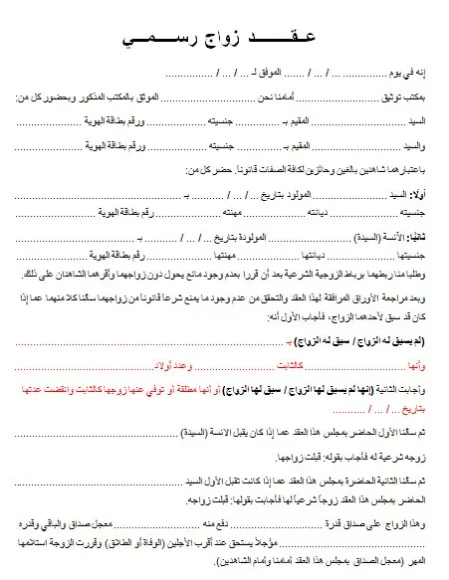 عـقـــــد زواج رســـمـــي
إنه في يوم ................ ... / ... / ....... الموفق لـ ... / ... / ................
بمكتب توثيق ........................ أمامنا نحن ............................ الموثق بالمكتب المذكور وبحضور كل من:
السيد ............................ المقيم بـ ............................ جنسيته ................ ورقم بطاقة الهوية ............................
والسيد ............................ المقيم بـ ............................ جنسيته ................ ورقم بطاقة الهوية ............................
باعتبارهما شاهدين بالغين وحائزين لكافة الصفات قانوناً. حضر كل من:
أولًا: السيد ............................ المولود بتاريخ ... / ... / ............ بـ ............................
جنسيته ................ ديانته ................ مهنته ................ رقم بطاقة الهوية ............................
ثانيًا: الآنسة (السيدة) ............................ المولودة بتاريخ ... / ... / ............ بـ ............................
جنسيتها ................ ديانتها ................ مهنتها ................ رقم بطاقة الهوية ............................
وطلبا منا ربطهما برباط الزوجية الشرعية بعد أن قررا بعدم وجود مانع يحول دون زواجهما وأقرهما الشاهدان على ذلك.
وبعد مراجعة الأوراق المرافقة لهذا العقد والتحقق من عدم وجود ما يمنع شرعاً قانوناً من زواجهما سألنا كلا منهما عما إذا
كان قد سبق لأحدهما الزواج، فأجاب الأول أنه:
(لم يسبق له الزواج / سبق له الزواج) بـ ............................
وأنها ............................ كالثابت ............................ وعدد أولاد ............................
وأجابت الثانية (إنها لم يسبق لها الزواج / سبق لها الزواج) أو أنها مطلقة أو توفي عنها زوجها كالثابت وانقضت عدتها
بتاريخ ... / ... / ...........
ثم سألنا الأول الحاضر بمجلس هذا العقد عما إذا كان يقبل الانسة (السيدة) ............................
زوجه شرعية له فأجاب بقوله: قبلت زواجها.
ثم سألنا الثانية الحاضرة بمجلس هذا العقد عما إذا كانت تقبل الأول السيد ............................
الحاضر بمجلس هذا العقد زوجاً شرعياً لها فأجابت بقولها: قبلت زواجه.
وهذا الزواج على صداق قدرة ............................ دفع منه ............................ معجل صداق والباقي وقدره
............................ مؤجلاً يستحق عند أقرب الأجلين (الوفاة أو الطلاق) وقررت الزوجة استلامها
المهر (معجل الصداق بمجلس هذا العقد أمامنا وأمام الشاهدين).